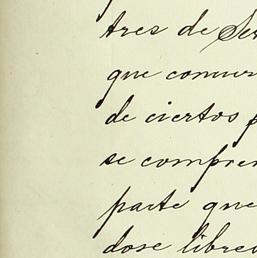 tres de Ser
que comun
de ciertos
se compren
parte que
dose libre